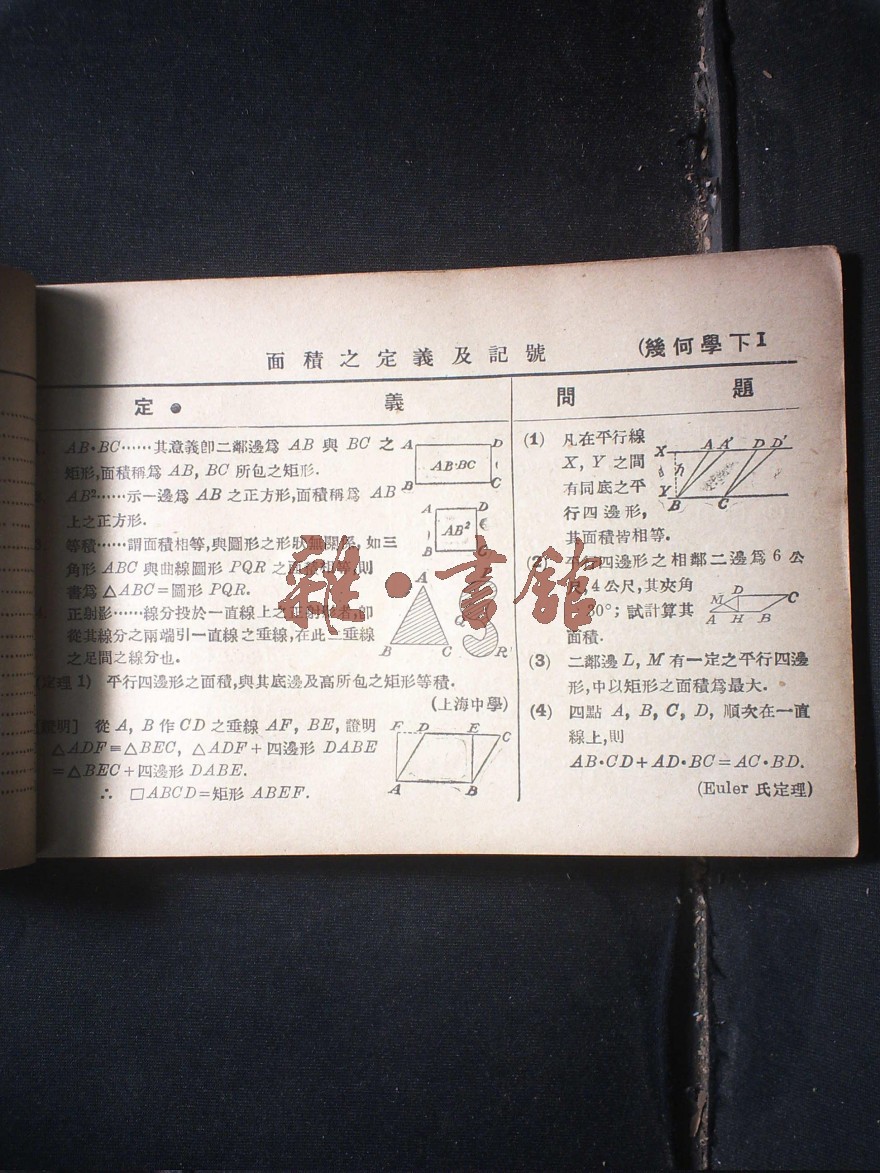 面積之定義及記號
(幾何學下I
定義
AB·BC……其意義卽二鄰邊爲 AB 與 BC 之
矩形,面積稱爲 AB, BC 所包之矩形.
A D
AB·BC
B C
AB²……示一邊爲 AB 之正方形,面積稱爲 AB
上之正方形.
A D
AB²
B C
等積……謂面積相等,與圖形之形狀無關係,如三
角形 ABC 與曲線圖形 PQR 之面積相等,則
書爲 △ABC=圖形 PQR.
正射影……線分投於一直線上之正射影者,卽
從其線分之兩端引一直線之垂線,在此二垂線
之足間之線分也.
A
B C
Q
R
定理 1) 平行四邊形之面積,與其底邊及高所包之矩形等積.
(上海中學)
證明] 從 A, B 作 CD 之垂線 AF, BE, 證明
△ADF≡△BEC, △ADF+四邊形 DABE
=△BEC+四邊形 DABE.
∴ □ABCD=矩形 ABEF.
F D E C
A B
問題
(1) 凡在平行線
X, Y 之間
有同底之平
行四邊形,
其面積皆相等.
X A A' D D'
h
Y B C
(2) 平行四邊形之相鄰二邊爲 6 公
尺,4公尺,其夾角
30°; 試計算其
面積.
M D C
A H B
(3) 二鄰邊 L, M 有一定之平行四邊
形,中以矩形之面積爲最大.
(4) 四點 A, B, C, D, 順次在一直
線上,則
AB·CD+AD·BC=AC·BD.
(Euler 氏定理)
雜·書館